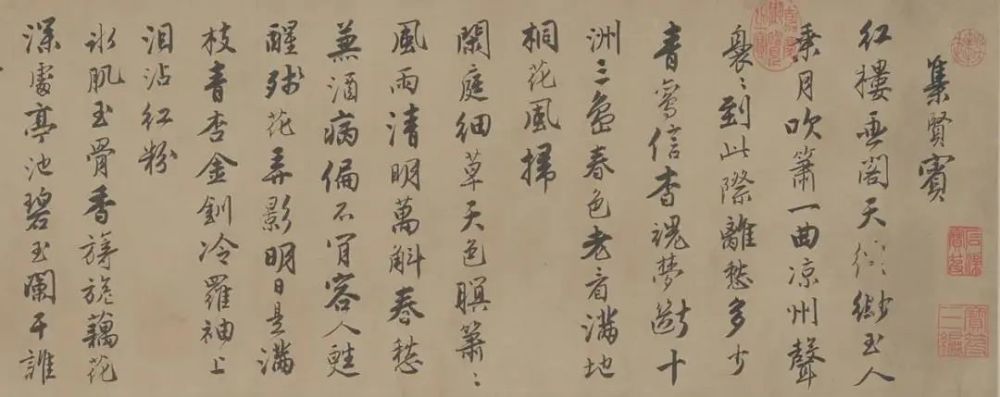 集賢賓
红樓画閣天缥缈玉人
乗月吹簫一曲凉州聲
裊〻到此際離愁多少
青鸞信杳魂夢断十
洲三島春色老看滿地
桐花風掃
閑庭細草天色暝簫〻
風雨清明萬斛春愁
兼酒病偏不肯容人甦
醒殘花弄影明日是滿
枝青杏金釧冷羅袖上
泪沾红粉
冰肌玉骨香旖旎藕花
深處亭池碧玉闌干誰